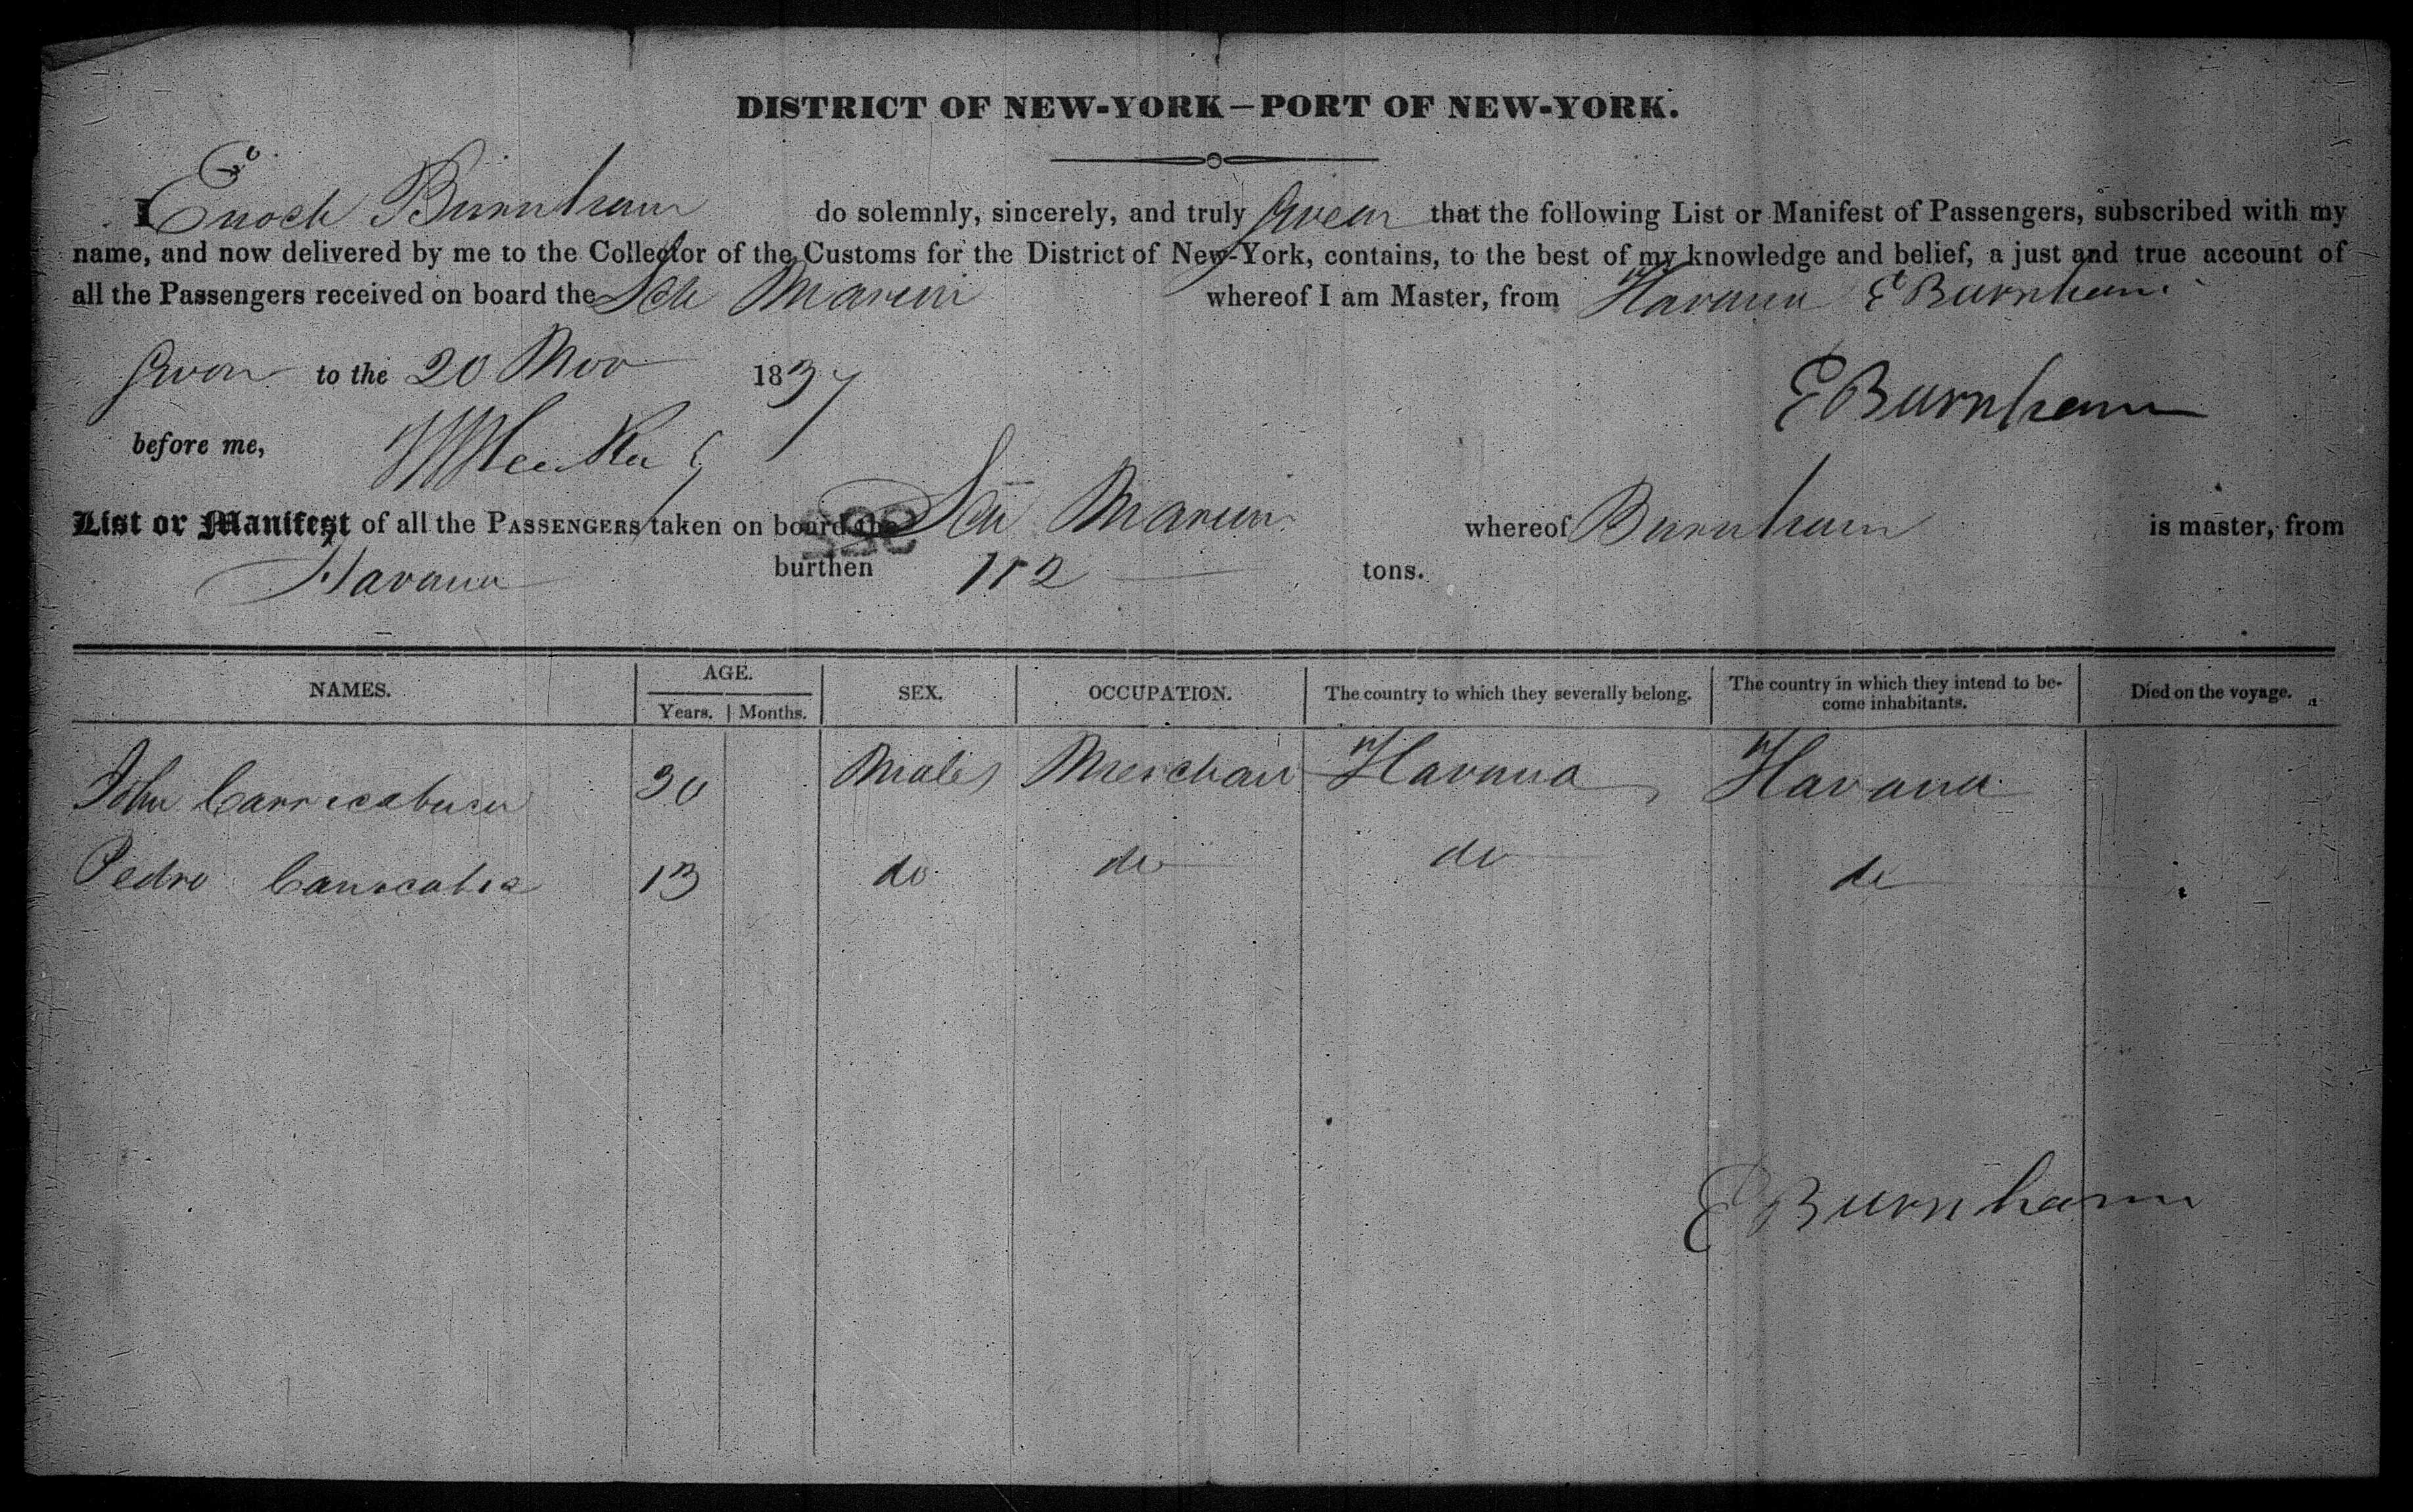 DISTRICT OF NEW-YORK—PORT OF NEW-YORK.
I Enoch Burnham do solemnly, sincerely, and truly Swear that the following List or Manifest of Passengers, subscribed with my
name, and now delivered by me to the Collector of the Customs for the District of New-York, contains, to the best of my knowledge and belief, a just and true account of
all the Passengers received on board the Sch whereof I am Master, from Havana E Burnham
Swon to the 20 Nov 1837
E Burnham
before me,
List or Manifest of all the PASSENGERS taken on board the Sch whereof Burnham is master, from
Havana burthen 112 tons.
NAMES. AGE. SEX. OCCUPATION. The country to which they severally belong. The country in which they intend to be- Died on the voyage.
Years. Months. come inhabitants.
John 30 Males Merchant Havana Havana
Pedro 13 do do do do
E Burnham